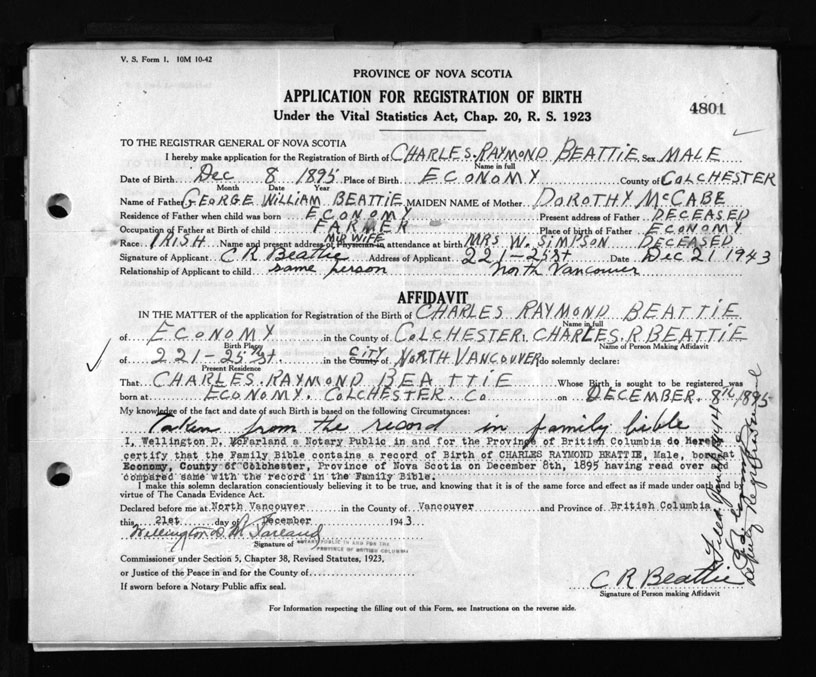 V. S. Form 1. 10M 10-42
PROVINCE OF NOVA SCOTIA
APPLICATION FOR REGISTRATION OF BIRTH
4801
Under the Vital Statistics Act, Chap. 20, R. S. 1923
TO THE REGISTRAR GENERAL OF NOVA SCOTIA
I hereby make application for the Registration of Birth of CHARLES. RAYMOND BEATTIE Sex MALE
Name in full
Date of Birth Dec 8 1895 Place of Birth ECONOMY County of COLCHESTER
Month Date Year
Name of Father GEORGE WILLIAM BEATTIE MAIDEN NAME of Mother DOROTHY McCABE
Residence of Father when child was born ECONOMY Present address of Father DECEASED
Occupation of Father at Birth of child FARMER Place of birth of Father ECONOMY
MID WIFE
Race IRISH Name and present address of Physician in attendance at birth MRS W. SIMPSON DECEASED
Signature of Applicant C R Beattie Address of Applicant 221-25 St Date Dec 21 1943
Relationship of Applicant to child same person North Vancouver
AFFIDAVIT
IN THE MATTER of the application for Registration of the Birth of CHARLES RAYMOND BEATTIE
Name in full
of ECONOMY in the County of COLCHESTER I, CHARLES. R. BEATTIE
Birth Place Name of Person Making Affidavit
of 221-25th St. in the County CITY of NORTH VANCOUVER do solemnly declare:
Present Residence
That CHARLES. RAYMOND BEATTIE Whose Birth is sought to be registered was
born at ECONOMY. COLCHESTER. Co on DECEMBER. 8TH, 1895
My knowledge of the fact and date of such Birth is based on the following Circumstances:
Taken from the record in family bible
I, Wellington D. McFarland a Notary Public in and for the Province of British Columbia do hereby
certify that the Family Bible contains a record of Birth of CHARLES RAYMOND BEATTIE, Male, born at
Economy, County of Colchester, Province of Nova Scotia on December 8th, 1895 having read over
compared same with the record in the Family Bible.
I make this solemn declaration conscientiously believing it to be true, and knowing that it is of the same force and effect as if made under oath and by
virtue of The Canada Evidence Act.
Declared before me at North Vancouver in the County of Vancouver and Province of British Columbia
this 21st day of December 1943
Wellington D. McFarland
Signature of NOTARY PUBLIC IN AND FOR THE
PROVINCE OF BRITISH COLUMBIA
Commissioner under Section 5, Chapter 38, Revised Statutes, 1923,
or Justice of the Peace in and for the County of
C R Beattie
If sworn before a Notary Public affix seal.
Signature of Person making Affidavit
For Information respecting the filling out of this Form, see Instructions on the reverse side.
Filed
Deputy Registrar General